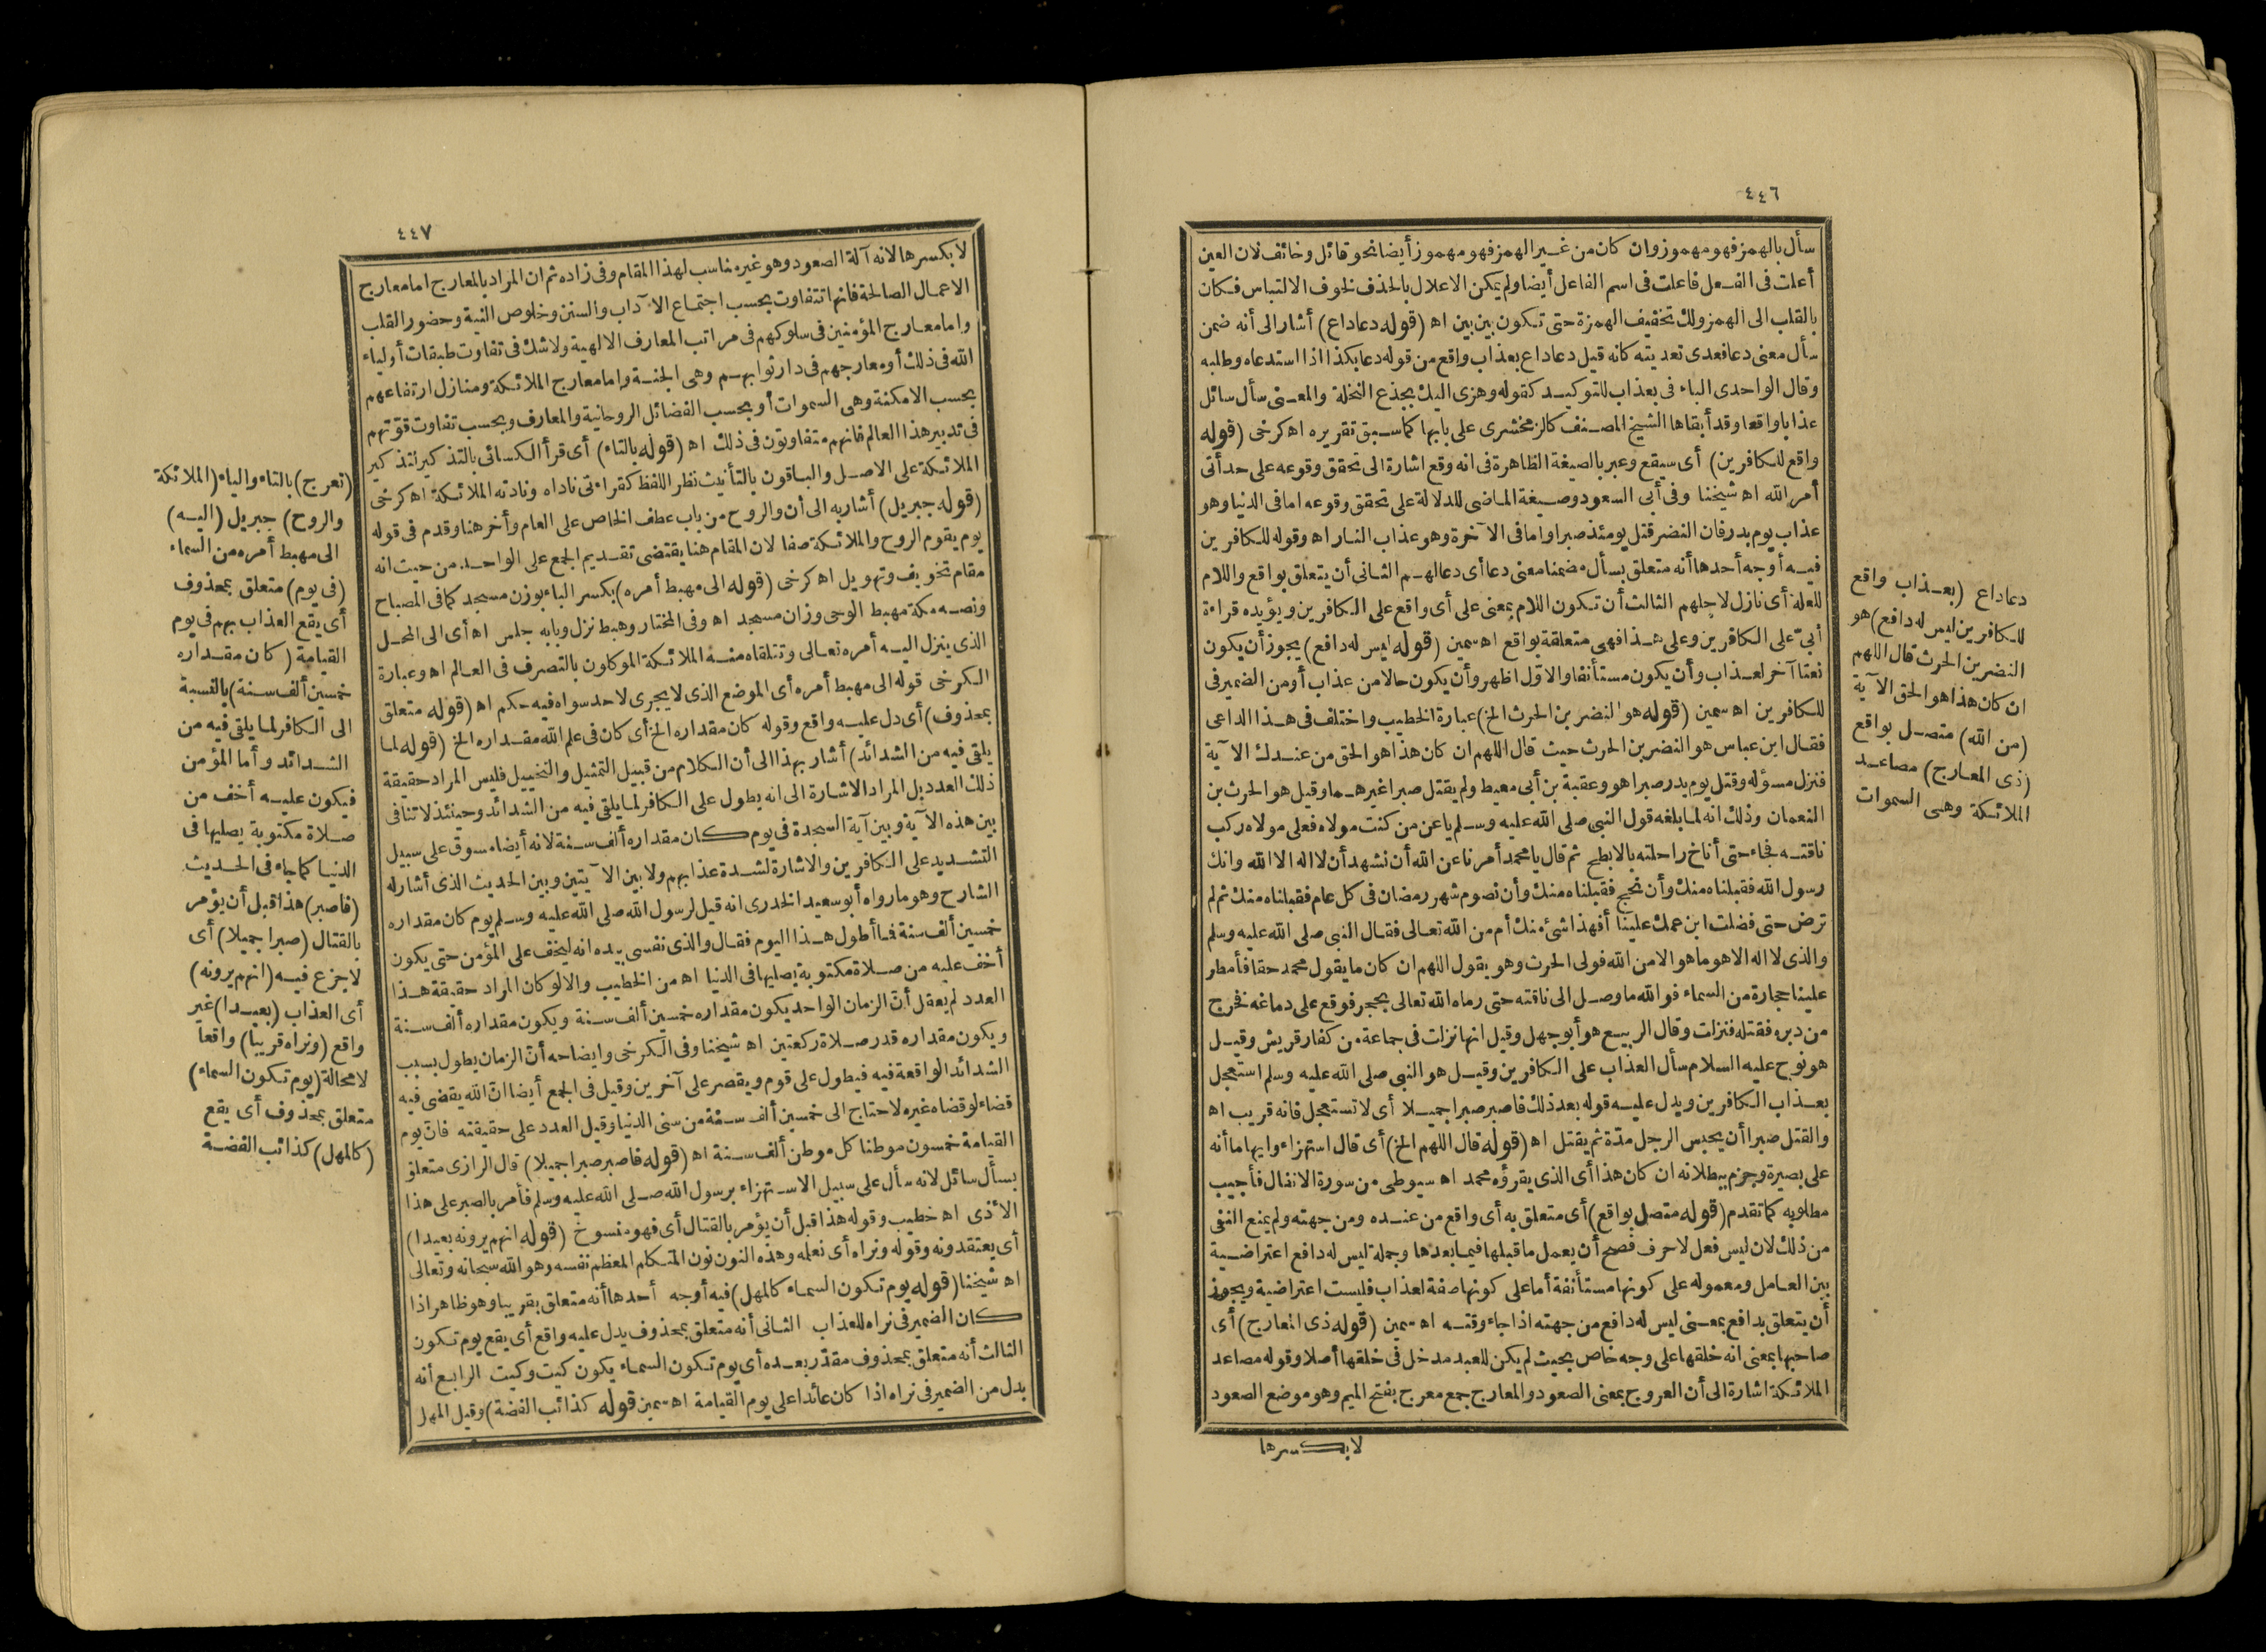 ٤٤٦
سأل بالهمز فهو مهموز وان كان من غير الهمز فهو مهموز أيضا نحو قائل وخائف لان العين
أعلت فى الفعل فاعلت فى اسم الفاعل أيضا ولم يمكن الاعلال بالحذف لخوف الالتباس فكان
بالقلب الى الهمز ولك تخفيف الهمزة حتى تكون بين بين اه (قوله دعا داع) أشار الى أنه ضمن
سأل معنى دعا فعدى تعديته كانه قيل دعا داع بعذاب واقع من قوله دعا بكذا اذا استدعاه وطلبه
وقال الواحدى الباء فى بعذاب للتوكيد كقوله وهزى اليك بجذع النخلة والمعنى سأل سائل
عذابا واقعا وقد أبقاها الشيخ المصنف كالزمخشرى على بابها كما سبق تقريره اه كرخى (قوله
واقع للكافرين) أى سيقع وعبر بالصيغة الظاهرة فى انه وقع اشارة الى تحقق وقوعه على حد أتى
أمر الله اه شيخنا وفى أبى السعود وصيغة الماضى للدلالة على تحقق وقوعه اما فى الدنيا وهو
عذاب يوم بدر فان النضر قتل يومئذ صبرا واما فى الآخرة وهو عذاب النار اه وقوله للكافرين
فيه أوجه أحدها أنه متعلق بسأل مضمنا معنى دعا أى دعا لهم الثانى أن يتعلق بواقع واللام
للعلة أى نازل لاجلهم الثالث أن تكون اللام بمعنى على أى واقع على الكافرين ويؤيده قراءة
أبىّ على الكافرين وعلى هذا فهى متعلقة بواقع اه سمين (قوله ليس له دافع) يجوز أن يكون
نعتا آخر لعذاب وأن يكون مستأنفا والاوّل اظهر وأن يكون حالا من عذاب أو من الضمير فى
للكافرين اه سمين (قوله هو النضر بن الحرث الخ) عبارة الخطيب واختلف فى هذا الداعى
فقال ابن عباس هو النضر بن الحرث حيث قال اللهم ان كان هذا هو الحق من عندك الآية
فنزل مسؤله وقتل يوم بدر صبرا هو وعقبة بن أبى معيط ولم يقتل صبرا غيرهما وقيل هو الحرث بن
النعمان وذلك انه لما بلغه قول النبى صلى الله عليه وسلم يا عن من كنت مولاه فعلى مولاه ركب
ناقته فجاء حتى أناخ راحلته بالابطح ثم قال يا محمد أمرتنا عن الله أن نشهد أن لا اله الا الله وانك
رسول الله فقبلناه منك وأن نحج فقبلناه منك وأن نصوم شهر رمضان فى كل عام فقبلناه منك ثم لم
ترض حتى فضلت ابن عمك علينا أفهذا شئ منك أم من الله تعالى فقال النبى صلى الله عليه وسلم
والذى لا اله الا هو ما هو الا من الله فولى الحرث وهو يقول اللهم ان كان ما يقول محمد حقا فأمطر
علينا حجارة من السماء فوالله ما وصل الى ناقته حتى رماه الله تعالى بحجر فوقع على دماغه فخرج
من دبره فقتله فنزلت وقال الربيع هو أبو جهل وقيل انها نزلت فى جماعة من كفار قريش وقيل
هو نوح عليه السلام سأل العذاب على الكافرين وقيل هو النبى صلى الله عليه وسلم استعجل
بعذاب الكافرين ويدل عليه قوله بعد ذلك فاصبر صبرا جميلا أى لا تستعجل فانه قريب اه
والقتل صبرا أن يحبس الرجل مدّة ثم يقتل اه (قوله قال اللهم الخ) أى قال استهزاء وايهاما أنه
على بصيرة وجزم ببطلانه ان كان هذا أى الذى يقرؤه محمد اه سيوطى من سورة الانفال فأجيب
مطلوبه كما تقدم (قوله متصل بواقع) أى متعلق به أى واقع من عنده ومن جهته ولم يمنع النفى
من ذلك لان ليس فعل لا حرف فصح أن يعمل ما قبلها فيما بعدها وجملة ليس له دافع اعتراضية
بين العامل ومعموله على كونها مستأنفة أما على كونها صفة لعذاب فليست اعتراضية ويجوز
أن يتعلق بدافع بمعنى ليس له دافع من جهته اذا جاء وقته اه سمين (قوله ذى المعارج) أى
صاحبها بمعنى انه خلقها على وجه خاص بحيث لم يكن للعبد مدخل فى خلقها أصلا وقوله مصاعد
الملائكة اشارة الى أن العروج بمعنى الصعود والمعارج جمع معرج بفتح الميم وهو موضع الصعود
لا بكسرها
دعا داع (بعذاب واقع
للكافرين ليس له دافع) هو
النضر بن الحرث قال اللهم
ان كان هذا هو الحق الآية
(من الله) متصل بواقع
(ذى المعارج) مصاعد
الملائكة وهى السموات
٤٤٧
لا بكسرها لانه آلة الصعود وهو غير مناسب لهذا المقام وفى زاده ثم ان المراد بالمعارج اما معارج
الاعمال الصالحة فانها تتفاوت بحسب اجتماع الآداب والسنن وخلوص النية وحضور القلب
واما معارج المؤمنين فى سلوكهم فى مراتب المعارف الالهية ولا شك فى تفاوت طبقات أولياء
الله فى ذلك أو معارجهم فى دار ثوابهم وهى الجنة واما معارج الملائكة ومنازل ارتفاعهم
بحسب الامكنة وهى السموات أو بحسب الفضائل الروحانية والمعارف وبحسب تفاوت قوّتهم
فى تدبير هذا العالم فانهم متفاوتون فى ذلك اه (قوله بالتاء) أى قرأ الكسائى بالتذكير لتذكير
الملائكة على الاصل والباقون بالتأنيث نظر اللفظ كقراءتى ناداه ونادته الملائكة اه كرخى
(قوله جبريل) أشار به الى أن والروح من باب عطف الخاص على العام وأخر هنا وقدم فى قوله
يوم يقوم الروح والملائكة صفا لان المقام هنا يقتضى تقديم الجمع على الواحد من حيث انه
مقام تخويف وتهويل اه كرخى (قوله الى مهبط أمره) بكسر الباء بوزن مسجد كما فى المصباح
ونصه مكة مهبط الوحى وزان مسجد اه وفى المختار وهبط نزل وبابه جلس اه أى الى المحل
الذى ينزل اليه أمره تعالى وتتلقاه منه الملائكة الموكاون بالتصرف فى العالم اه وعبارة
الكرخى قوله الى مهبط أمره أى الموضع الذى لا يجرى لاحد سواه فيه حكم اه (قوله متعلق
بمحذوف) أى دل عليه واقع وقوله كان مقداره الخ أى كان فى علم الله مقداره الخ (قوله لما
يلقى فيه من الشدائد) أشار بهذا الى أن الكلام من قبيل التمثيل والتخييل فليس المراد حقيقة
ذلك العدد بل المراد الاشارة الى انه يطول على الكافر لما يلقى فيه من الشدائد وحينئذ لا تنافى
بين هذه الآية وبين آية السجدة فى يوم كان مقداره ألف سنة لانه أيضا مسوق على سبيل
التشديد على الكافرين والاشارة لشدة عذابهم ولا بين الآيتين وبين الحديث الذى أشار له
الشارح وهو ما رواه أبو سعيد الخدرى انه قيل لرسول الله صلى الله عليه وسلم يوم كان مقداره
خمسين ألف سنة فما أطول هذا اليوم فقال والذى نفسى بيده انه ليخف على المؤمن حتى يكون
أخف عليه من صلاة مكتوبة يصليها فى الدنيا اه من الخطيب والا لو كان المراد حقيقة هذا
العدد لم يعقل أن الزمان الواحد يكون مقداره خمسين ألف سنة ويكون مقداره ألف سنة
ويكون مقداره قدر صلاة ركعتين اه شيخنا وفى الكرخى وايضاحه أن الزمان يطول بسبب
الشدائد الواقعة فيه فيطول على قوم ويقصر على آخرين وقيل فى الجمع أيضا ان الله يقضى فيه
قضاء لو قضاه غيره لاحتاج الى خمسين ألف سنة من سنى الدنيا وقيل العدد على حقيقته فان يوم
القيامة خمسون موطنا كل موطن ألف سنة اه (قوله فاصبر صبرا جميلا) قال الرازى متعلق
بسأل سائل لانه سأل على سبيل الاستهزاء برسول الله صلى الله عليه وسلم فأمر بالصبر على هذا
الأذى اه خطيب وقوله هذا قبل أن يؤمر بالقتال أى فهو منسوخ (قوله انهم يرونه بعيدا)
أى يعتقدونه وقوله ونراه أى نعلمه وهذه النون نون المتكلم المعظم نفسه وهو الله سبحانه وتعالى
اه شيخنا (قوله يوم تكون السماء كالمهل) فيه أوجه أحدها أنه متعلق بقريبا وهو ظاهر اذا
كان الضمير فى نراه للعذاب الثانى أنه متعلق بمحذوف يدل عليه واقع أى يقع يوم تكون
الثالث أنه متعلق بمحذوف مقدّر بعده أى يوم تكون السماء يكون كيت وكيت الرابع أنه
بدل من الضمير فى نراه اذا كان عائدا على يوم القيامة اه سمين قوله كذائب الفضة) وقيل المهل
(تعرج) بالتاء والياء (الملائكة
والروح) جبريل (اليه)
الى مهبط أمره من السماء
(فى يوم) متعلق بمحذوف
أى يقع العذاب بهم فى يوم
القيامة (كان مقداره
خمسين ألف سنة) بالنسبة
الى الكافر لما يلقى فيه من
الشدائد وأما المؤمن
فيكون عليه أخف من
صلاة مكتوبة يصليها فى
الدنيا كما جاء فى الحديث
(فاصبر) هذا قبل أن يؤمر
بالقتال (صبرا جميلا) أى
لا جزع فيه (انهم يرونه)
أى العذاب (بعيدا) غير
واقع (ونراه قريبا) واقعا
لا محالة (يوم تكون السماء)
متعلق بمحذوف أى يقع
(كالمهل) كذائب الفضة